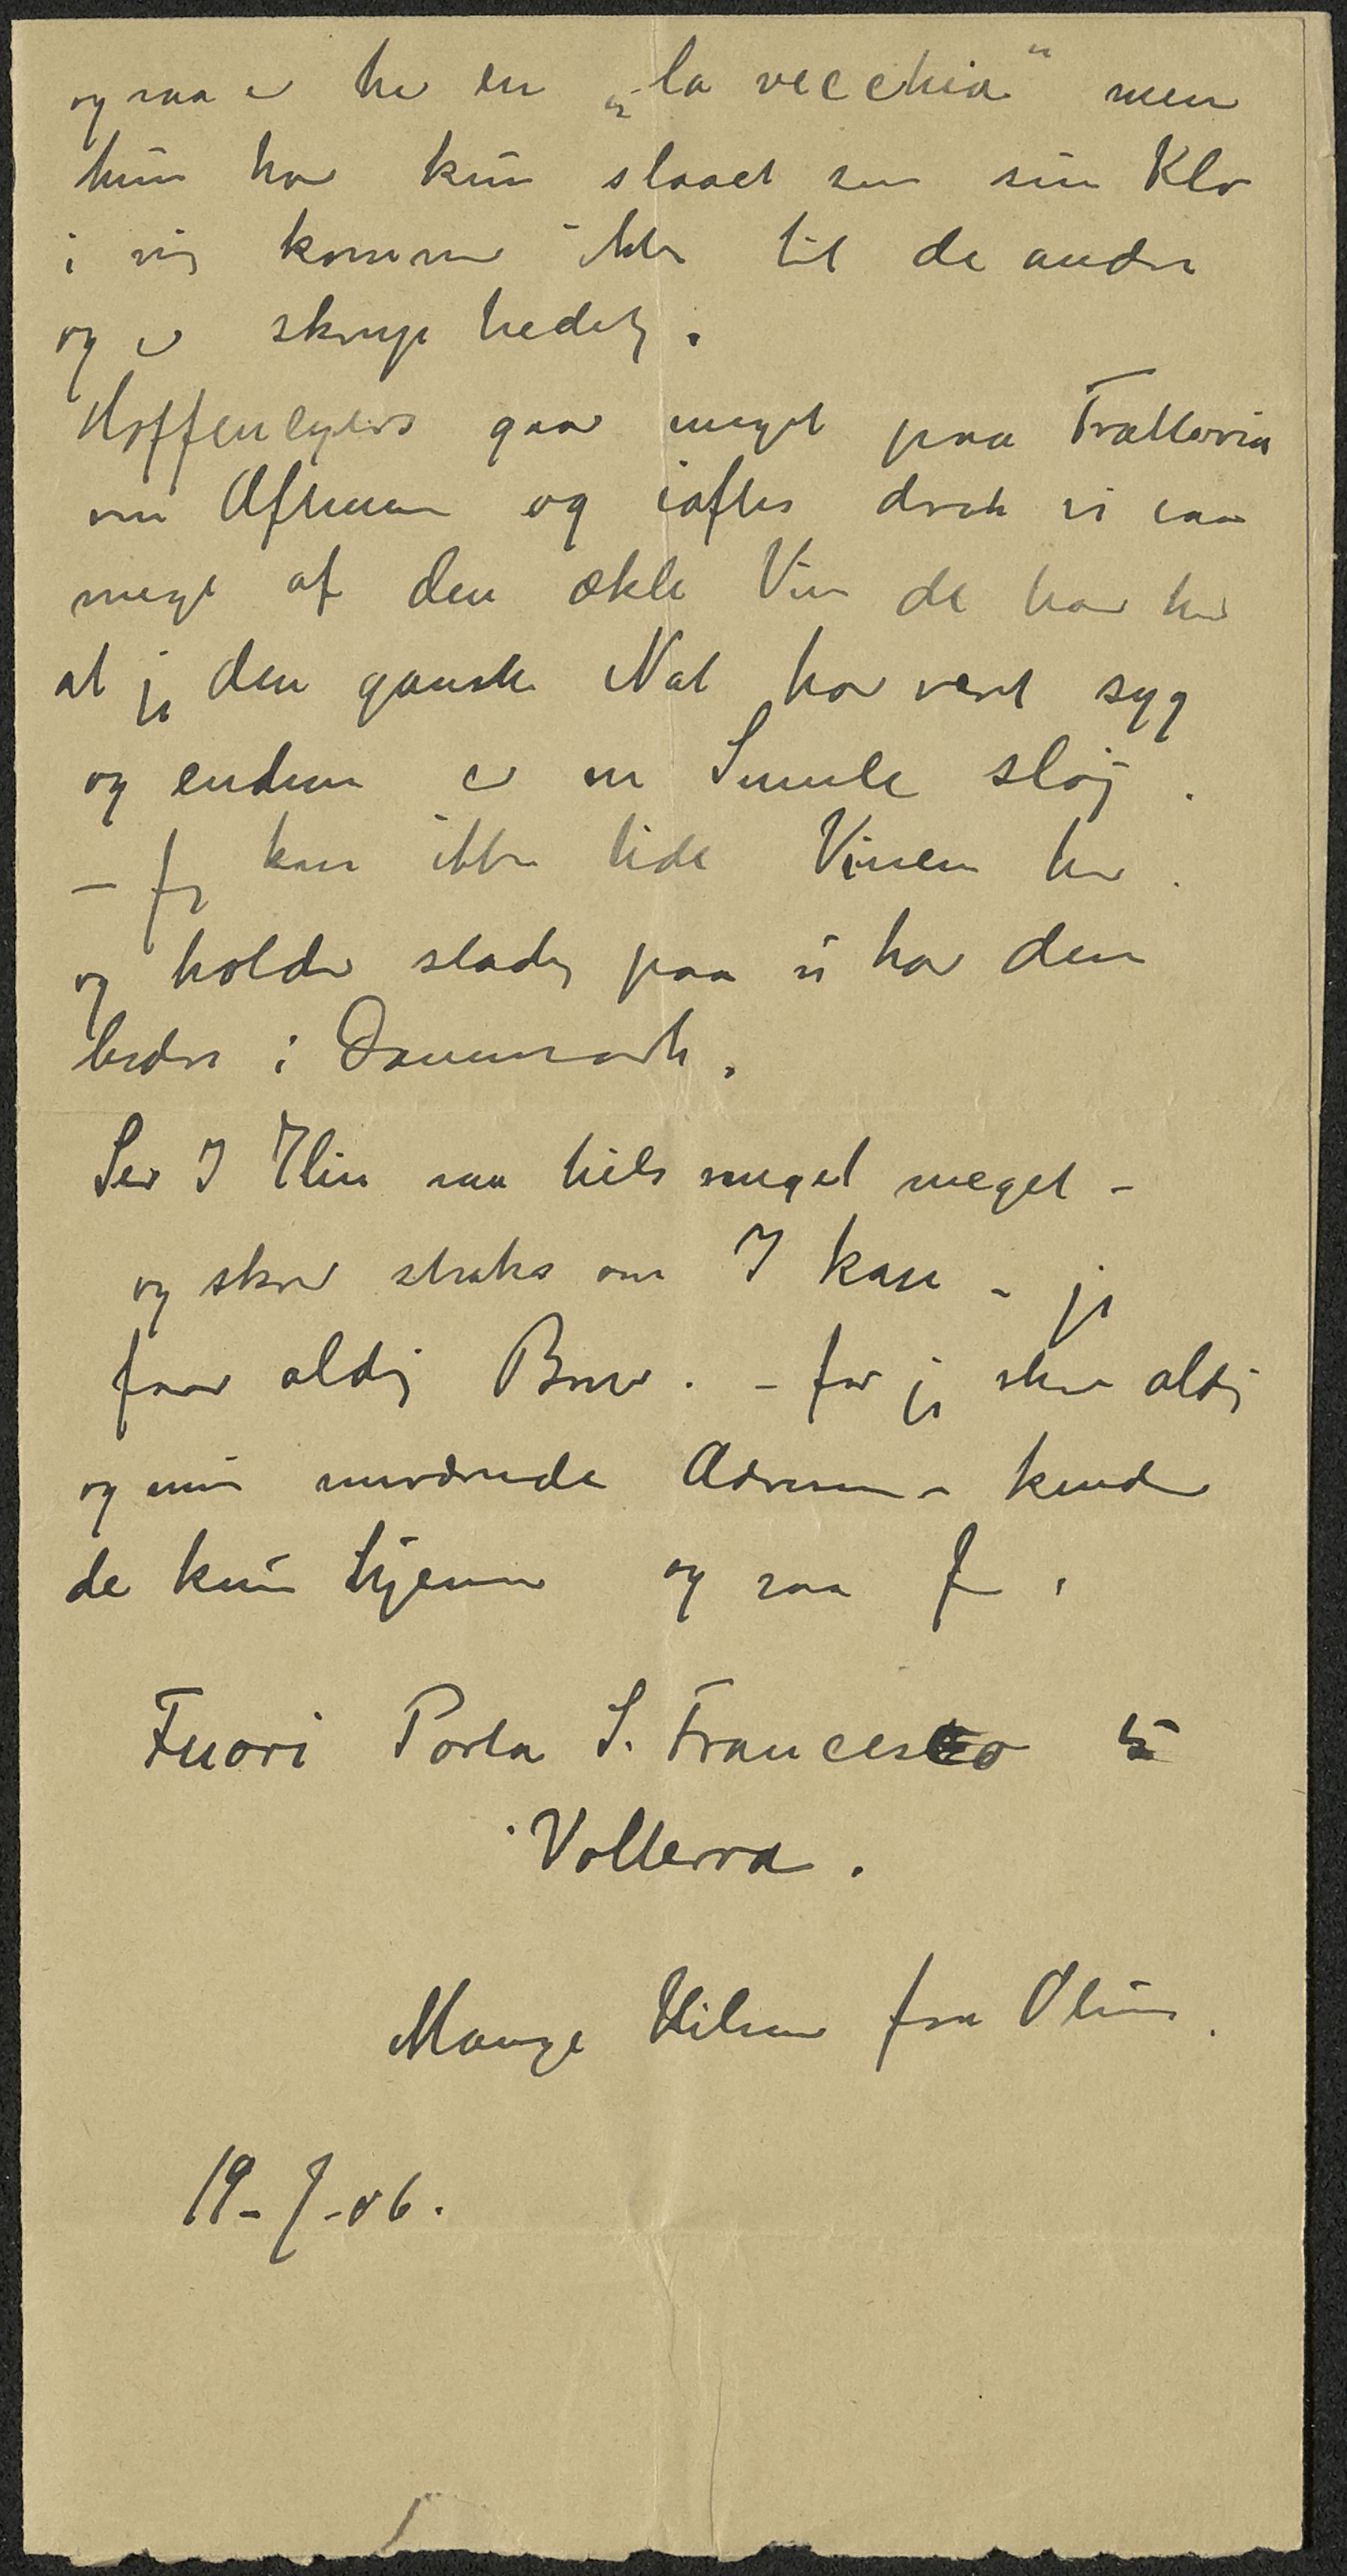 og saa er her en „la vecchia" men
hun har kun slaaet sin Klo
i mig kommer ikke til de andre
og er skruphedelig.
gaar meget paa Trattoria
om Aftenen og iaftes drak vi saa
meget af den ækle Vin de har her
at jeg den ganske Nat har vært syg
og endnu er en Smule sløj.
- Jeg kan ikke lide Vinen her.
og holder stadig paa vi har den
bedre i Danmark.
Ser I Elin saa hils meget meget -
og skriv straks om I kan - jeg
faar aldrig Breve. - for jeg skriver aldrig
og min nuværende Adresse - kender
de kun hjemme og saa I.
Fuori Porta S. Francesco 5
Volterra.
Mange Hilsner fra
19-7-06.